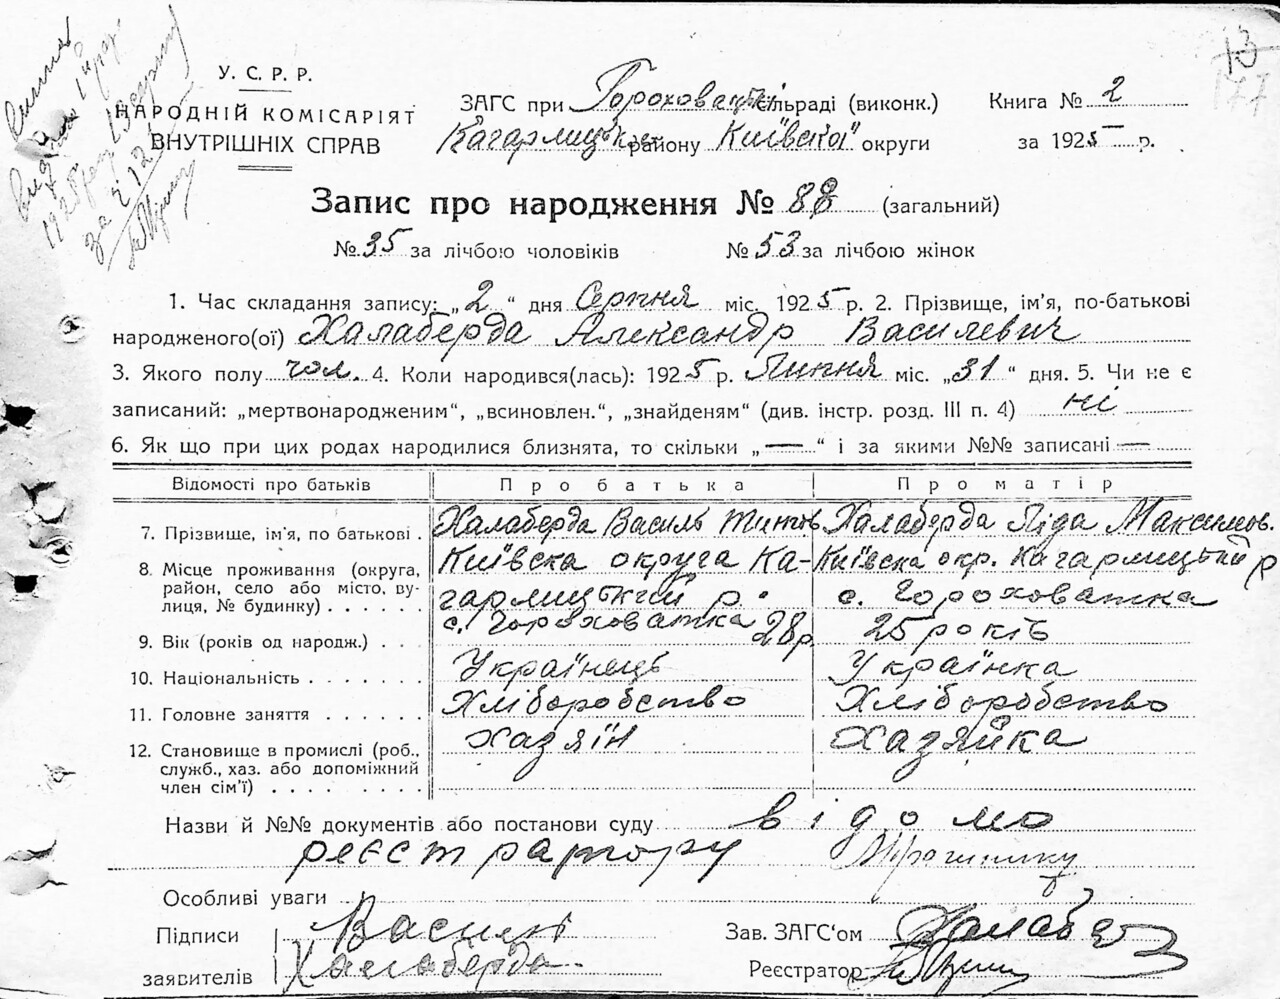 13
177
У. С. Р. Р.
НАРОДНІЙ КОМІСАРІЯТ
ВНУТРІШНІХ СПРАВ
ЗАГС при Гороховацькі сільраді (виконк.)
Кагарлицьк району Київскоі округи
Книга № 2
за 1925 р.
Запис про народження № 88 (загальний)
№ 35 за лічбою чоловіків № 53 за лічбою жінок
1. Час складання запису: „2“ дня Серпня міс. 1925 р. 2. Прізвище, ім'я, по-батькові
народженого(ої) Халаберда Александр Василевич
3. Якого полу чол. 4. Коли народився(лась): 1925 р. Липня міс. „31“ дня. 5. Чи не є
записаний: „мертвонародженим“, „всиновлен.“, „знайденям“ (див. інстр. розд. III п. 4) ні
6. Як що при цих родах народилися близнята, то скільки „—“ і за якими №№ записані —
Відомості про батьків Про батька Про матір
7. Прізвище, ім'я, по батькові . Халаберда Василь Халаберда Ліда Максимов.
8. Місце проживання (округа, район, село або місто, вулиця, № будинку) . . . . . . Київска округа Ка-
гарлицький р.
с. Гороховатка Київска окр. Кагарлицький р
с. Гороховатка
9. Вік (років од народж.) . . . 28 р. 25 років
10. Національність . . . . . . . Українець Українка
11. Головне заняття . . . . . . Хліборобство Хліборобство
12. Становище в промислі (роб., служб., хаз. або допоміжний член сім'ї) . . . . . . . . . хазяїн Хазяйка
Назви й №№ документів або постанови суду відомо
реєстратору Мрошнику
Особливі уваги
Підписи
заявителів
Василь
Халаберда
Зав. ЗАГС‘ом Халабе
Реєстратор